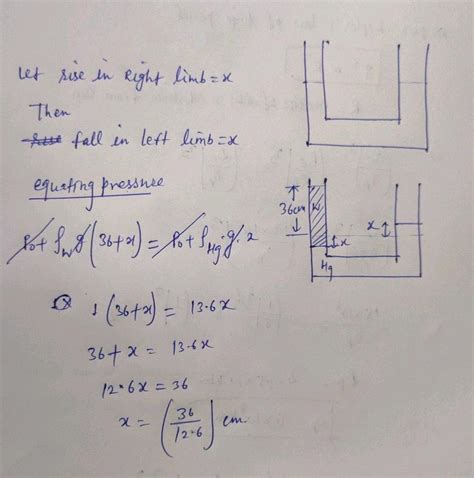 Let rise in Right limb = x
Then
fall in left limb = x
equating pressure
P₀ + ρ_w g (36+x) = P₀ + ρ_Hg · g · x
1 (36+x) = 13.6x
36+x = 13.6x
12.6x = 36
x = (36/12.6) cm
36cm
W
x
x
Hg